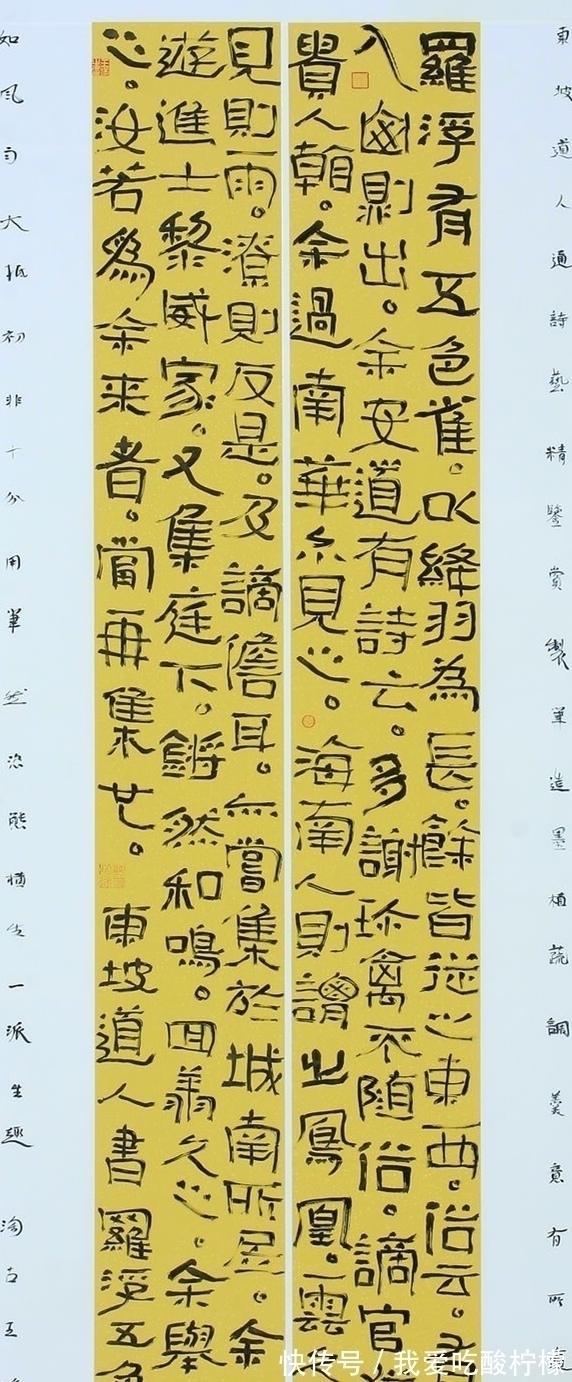 東坡道人通詩藝精鑒賞製筆造墨植蔬調羹意有所
羅浮有五色雀。以絳羽為長。餘皆從之東西。俗云。
入則出。余安道有詩云。多謝珍禽不隨俗。謫官
貴人朝。余過南華亦見之。海南人則謂之鳳凰。雲
見則雨。潦則反是。及謫儋耳。亦嘗集於城南所居。余
遊進士黎威家。又集庭下。鏘然和鳴。回翔久之。余舉
之。汝若為余來者。當再集也。東坡道人書 羅浮五色
如風大抵初非十分用筆然恣態橫生一派生趣
快传号/我爱吃酸柠檬